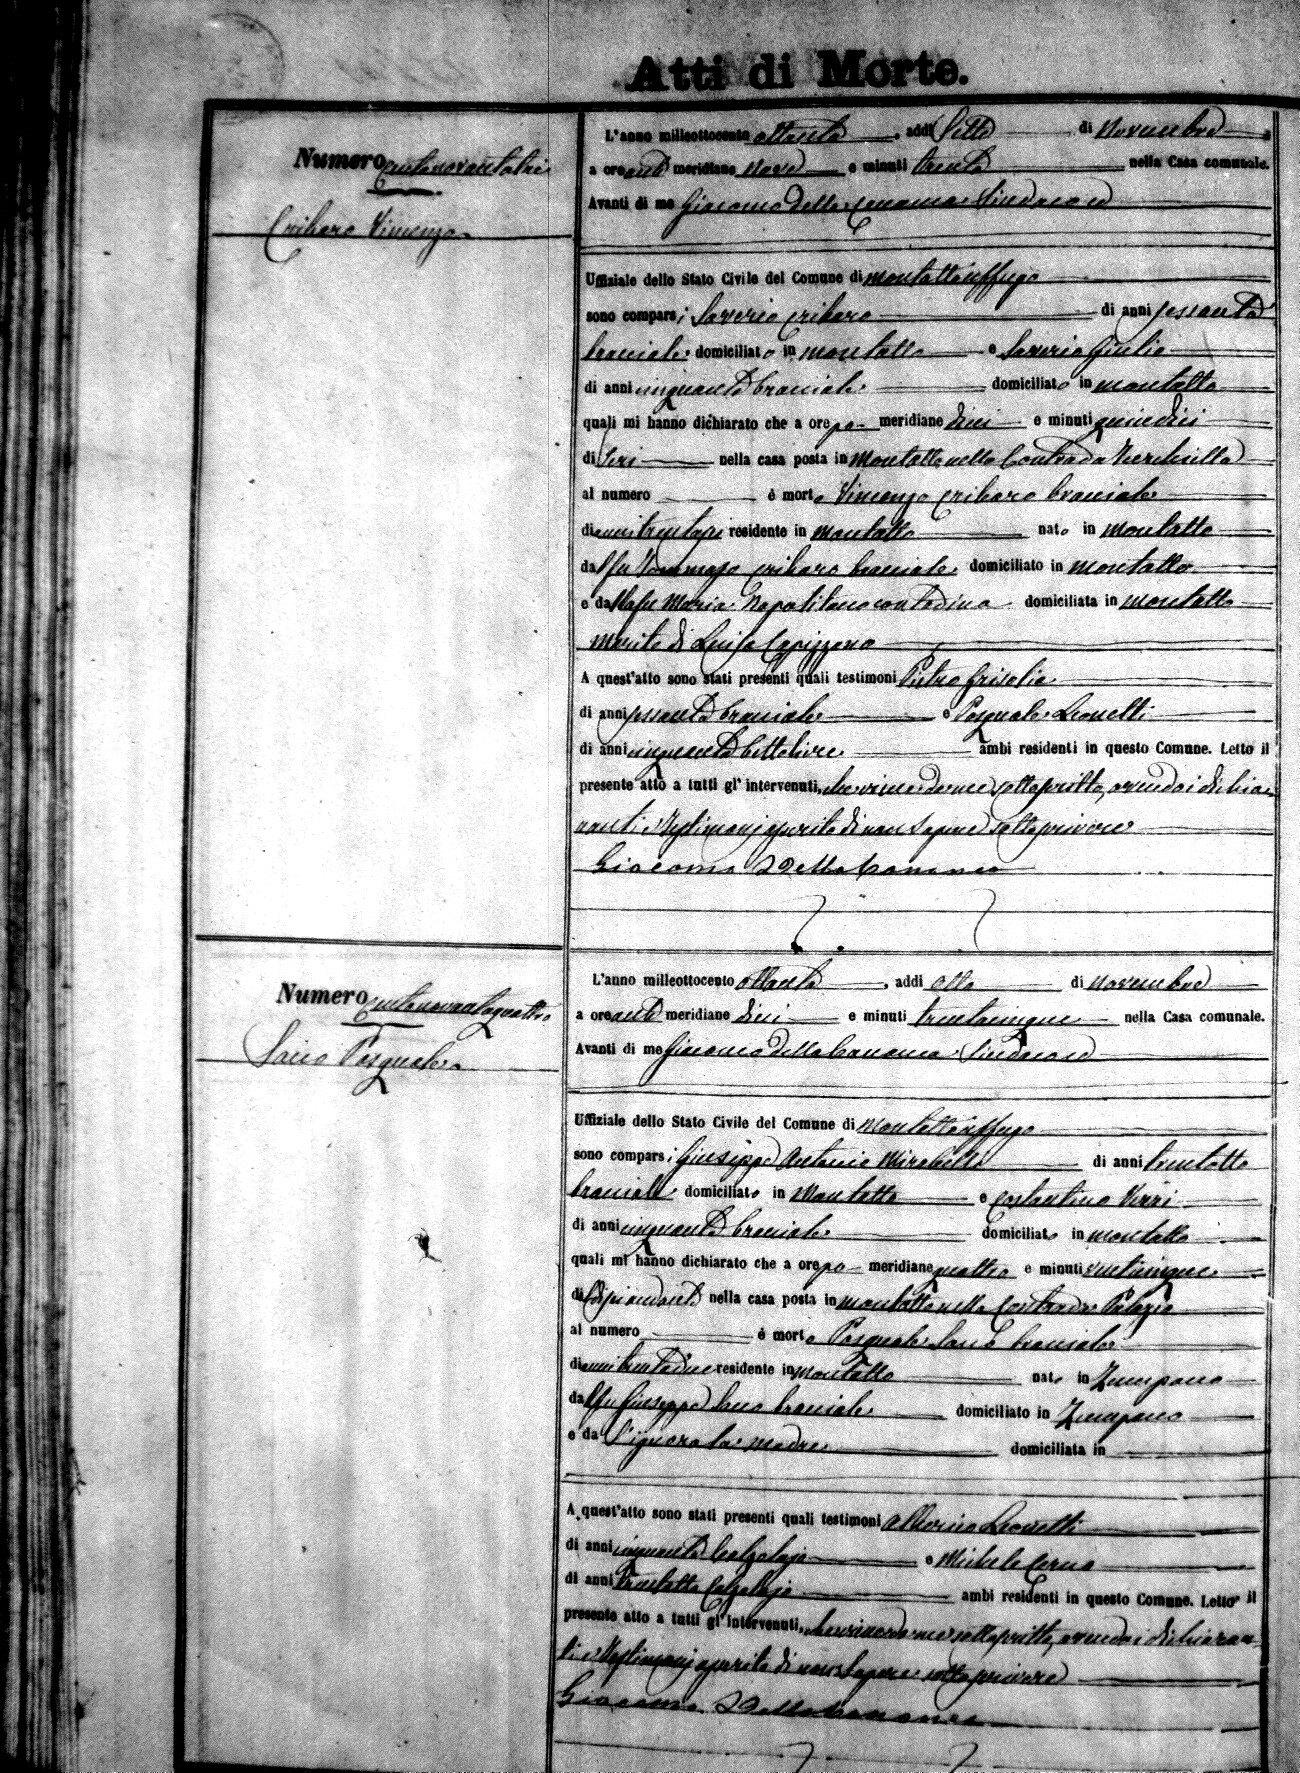 Atti di Morte.
Numero centonovantatre
Cribaro Vincenzo
L'anno milleottocento ottanta, addì sette di Novembre,
a ore anti meridiane nove e minuti trenta nella Casa comunale.
Avanti di me Giacomo della Cananea Sindaco ed
Uffiziale dello Stato Civile del Comune di Montalto Uffugo
sono comparsi Saverio Cribaro di anni sessanta
bracciale domiciliato in Montalto e Saverio Giulio
di anni cinquanta bracciale domiciliato in Montalto
quali mi hanno dichiarato che a ore po meridiane dieci e minuti quindici
di Ieri nella casa posta in Montalto nella Contrada
al numero è morto Vincenzo Cribaro bracciale
di anni trentasei residente in Montalto nato in Montalto
dal fu Tommaso Cribaro bracciale domiciliato in Montalto
e dalla fu Maria Napolitano contadina domiciliata in Montalto
marito di Luisa Capizzano
A quest'atto sono stati presenti quali testimoni Pietro Grisolia
di anni sessanta bracciale e Pasquale Leonetti
di anni cinquanta bettoliere ambi residenti in questo Comune. Letto il
presente atto a tutti gl' intervenuti, da me sottoscritto, avendo i dichia-
ranti e testimonj asserito di non sapere sottoscrivere
Giacomo Della Cananea
Numero centonovantaquattro
Sacco Pasquale
L'anno milleottocento ottanta, addì otto di Novembre
a ore anti meridiane dieci e minuti trentacinque nella Casa comunale.
Avanti di me Giacomo della Cananea Sindaco ed
Uffiziale dello Stato Civile del Comune di Montalto Uffugo
sono comparsi Giuseppe Antonio Mirabelli di anni trentotto
bracciale domiciliato in Montalto e Costantino Verri
di anni cinquanta bracciale domiciliato in Montalto
quali mi hanno dichiarato che a ore po meridiane quattro e minuti venticinque
di nella casa posta in Montalto nella Contrada Palazzo
al numero è morto Pasquale Sacco bracciale
di anni trentadue residente in Montalto nato in Zumpano
dal fu Giuseppe Sacco bracciale domiciliato in Zumpano
e da s'ignora la madre domiciliata in
A quest'atto sono stati presenti quali testimoni Leonetti
di anni cinquanta Calzolajo e Michele
di anni trentotto Calzolajo ambi residenti in questo Comune. Letto il
presente atto a tutti gl' intervenuti, da me sottoscritto, avendo i dichiaran-
ti e testimonj asserito di non sapere sottoscrivere
Giacomo Della Cananea